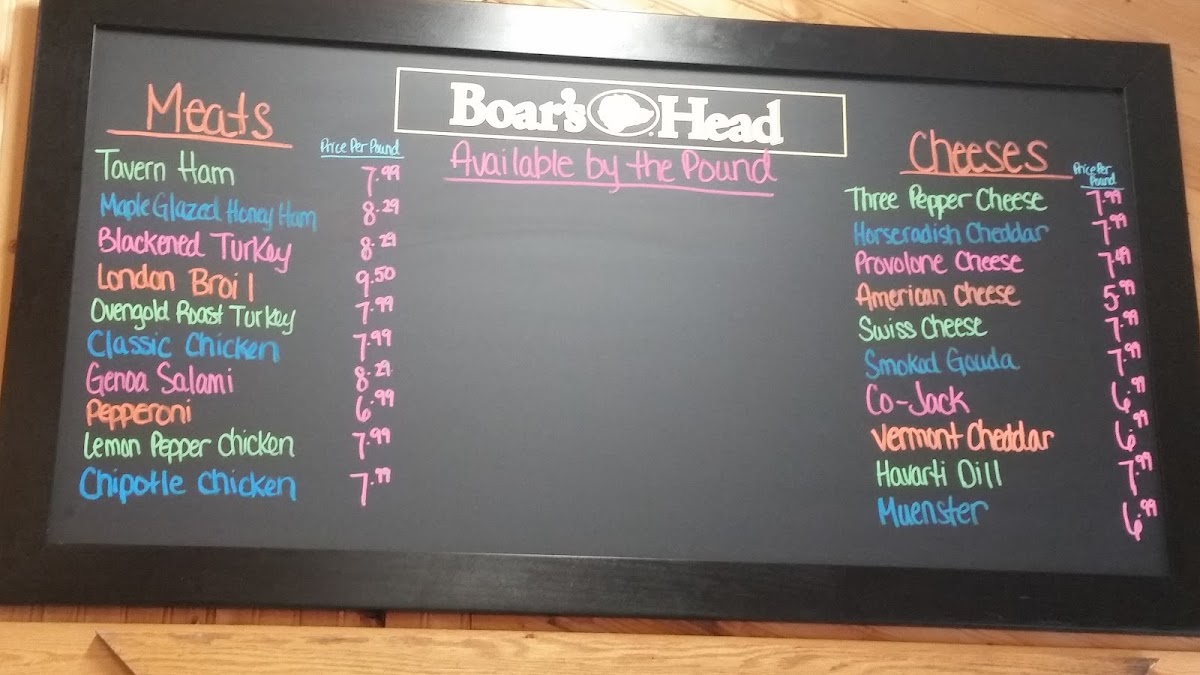 Boar's Head
Available by the Pound
Meats
Price Per Pound
Tavern Ham 7.99
Maple Glazed Honey Ham 8.29
Blackened Turkey 8.29
London Broil 9.50
Ovengold Roast Turkey 7.99
Classic Chicken 7.99
Genoa Salami 8.29
Pepperoni 6.99
Lemon Pepper Chicken 7.99
Chipotle Chicken 7.99
Cheeses
Price Per
Pound
Three Pepper Cheese 7.99
Horseradish Cheddar 7.99
Provolone Cheese
American Cheese 5.99
Swiss Cheese 7.99
Smoked Gouda 7.99
Co-Jack 6.99
Vermont Cheddar 6.99
Havarti Dill 7.99
Muenster 6.99